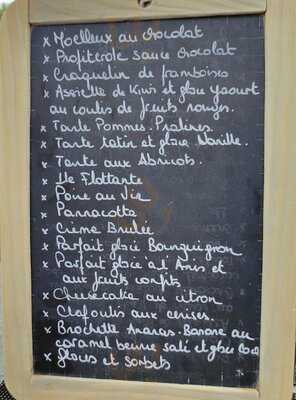 x Moelleux au chocolat
x Profiterole sauce chocolat
x Craquelin de framboises
x Assiette de Kiwis et glace yaourt
au coulis de fruits rouges.
x Tarte Pommes. Pralines
x Tarte tatin et glace Vanille.
x Tarte aux Abricots.
x Ile Flottante
x Poire au Vin
x Pannacotta
x Crème Brulée
x Parfait glacé Bourguignon
x Parfait glacé à l'Anis et
aux fruits confits
x Cheesecake au citron
x Clafoutis aux cerises.
x Brochette Ananas. Banane au
caramel beurre salé et glace Coco
x Glaces et sorbets